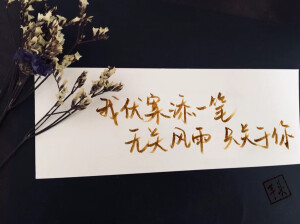 我伏案添一笔
无关风雨 只关于你